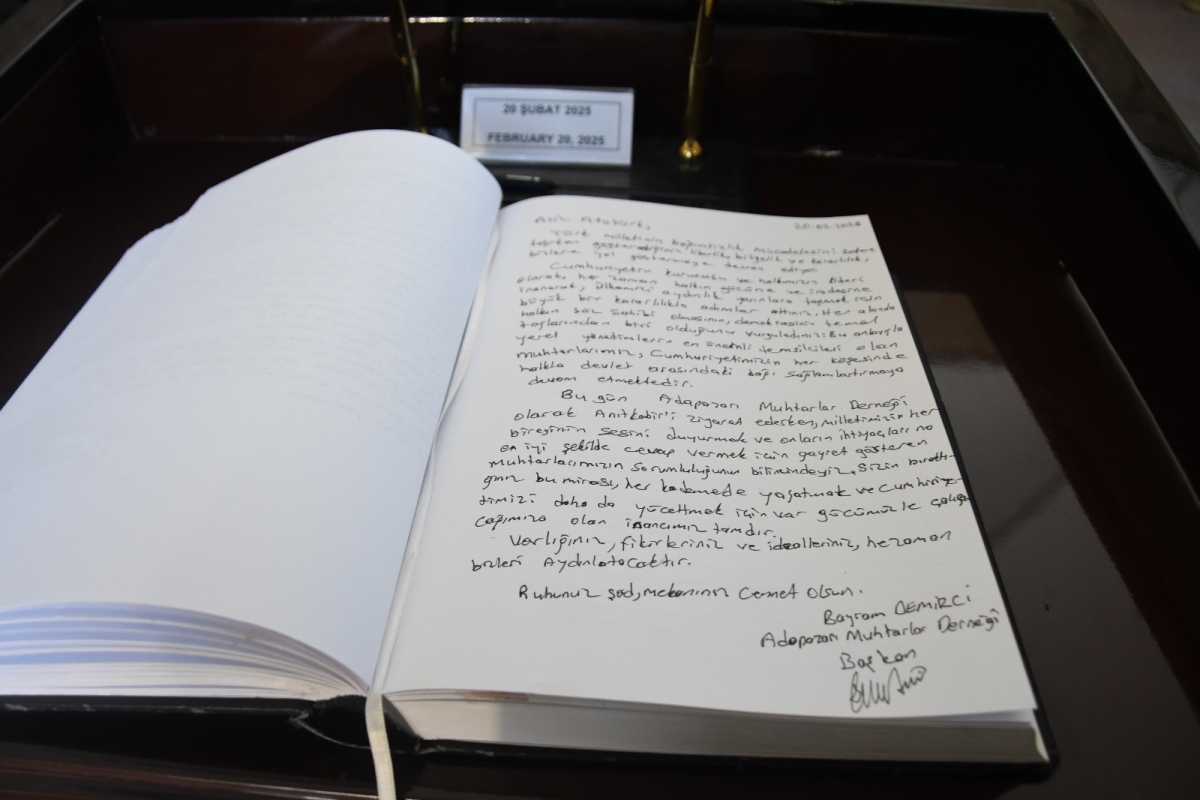 20 ŞUBAT 2025
FEBRUARY 20, 2025
Aziz Atatürk, 20.02.2025
Türk milletinin bağımsızlık mücadelesini zafere
taşırken gösterdiğiniz liderlik, bilgelik ve kararlılık,
bizlere yol göstermeye devam ediyor.
Cumhuriyetin kurucusu ve halkımızın lideri
olarak, her zaman halkın gücüne ve iradesine
inanarak, ülkemizi aydınlık yarınlara taşımak için
büyük bir kararlılıkla adımlar attınız. Her alanda
halkın söz sahibi olmasının, demokrasinin temel
taşlarından biri olduğunu vurguladınız. Bu anlayışla
yerel yönetimlerin en önemli temsilcileri olan
muhtarlarımız, Cumhuriyetimizin her köşesinde
halkla devlet arasındaki bağı sağlamlaştırmaya
devam etmektedir.
Bu gün Adapazarı Muhtarlar Derneği
olarak Anıtkabir'i ziyaret ederken, milletimizin her
bireyinin sesini duyurmak ve onların ihtiyaçlarına
en iyi şekilde cevap vermek için gayret gösteren
muhtarlarımızın sorumluluğunun bilincindeyiz. Sizin bıraktı-
ğınız bu mirası, her kademede yaşatmak ve Cumhuriye-
timizi daha da yüceltmek için var gücümüzle çalışa-
cağımıza olan inancımız tamdır.
Varlığınız, fikirleriniz ve idealleriniz, her zaman
bizleri Aydınlatacaktır.
Ruhunuz şad, mekanınız Cennet Olsun.
Bayram DEMİRCİ
Adapazarı Muhtarlar Derneği
Başkanı